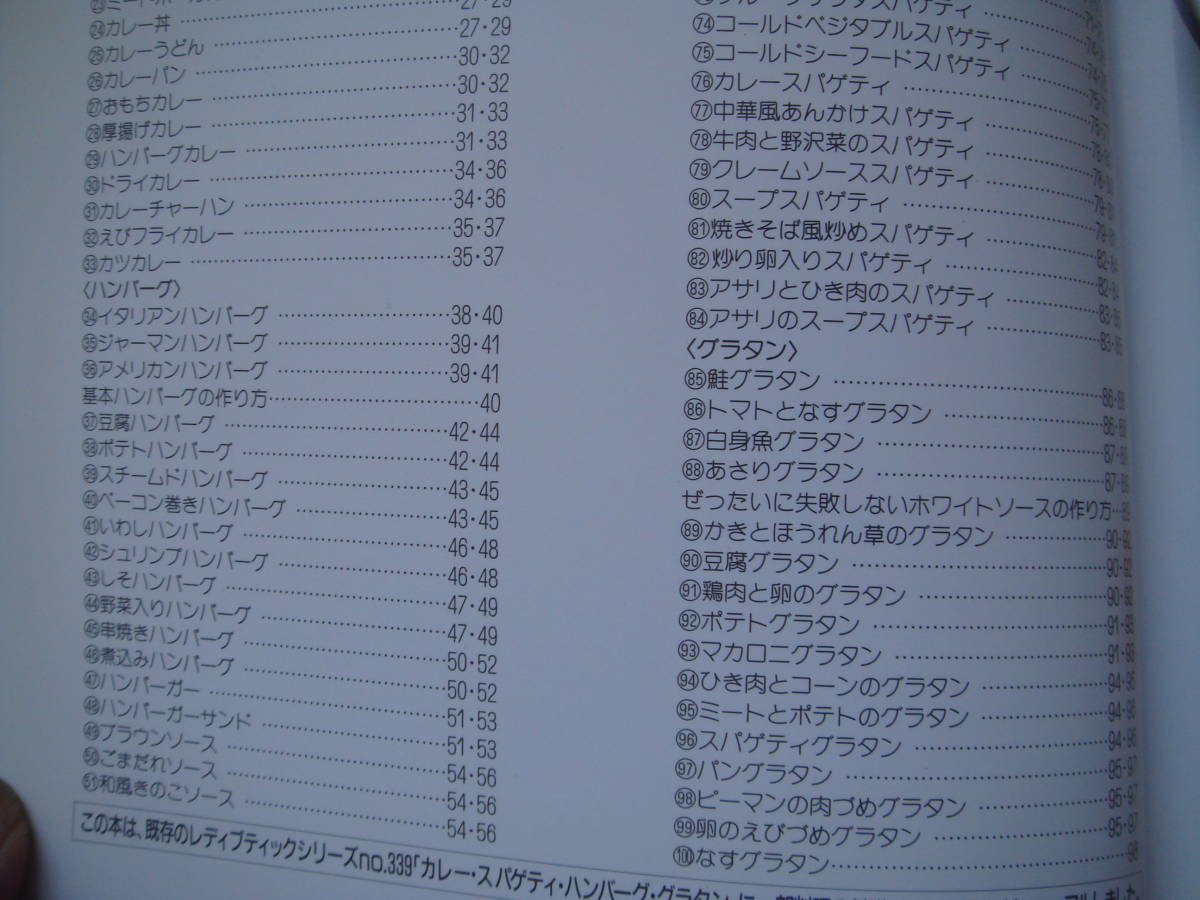 ㉔カレー丼……27・29
㉕カレーうどん……27・29
㉖カレーパン……30・32
㉗おもちカレー……30・32
㉘厚揚げカレー……31・33
㉙ハンバーグカレー……31・33
㉚ドライカレー……34・36
㉛カレーチャーハン……34・36
㉜えびフライカレー……35・37
㉝カツカレー……35・37
〈ハンバーグ〉
㉞イタリアンハンバーグ……38・40
㉟ジャーマンハンバーグ……39・41
㊱アメリカンハンバーグ……39・41
基本ハンバーグの作り方……40
㊲豆腐ハンバーグ……42・44
㊳ポテトハンバーグ……42・44
㊴スチームドハンバーグ……43・45
㊵ベーコン巻きハンバーグ……43・45
㊶いわしハンバーグ……46・48
㊷シュリンプハンバーグ……46・48
㊸しそハンバーグ……47・49
㊹野菜入りハンバーグ……47・49
㊺串焼きハンバーグ……50・52
㊻煮込みハンバーグ……50・52
㊼ハンバーガー……51・53
㊽ハンバーガーサンド……51・53
㊾ブラウンソース……54・56
㊿ごまだれソース……54・56
51和風きのこソース……54・56
74コールドベジタブルスパゲティ……74
75コールドシーフードスパゲティ……75
76カレースパゲティ……75
77中華風あんかけスパゲティ……78
78牛肉と野沢菜のスパゲティ……78・80
79クレームソーススパゲティ……79・81
80スープスパゲティ……79・81
81焼きそば風炒めスパゲティ……82・84
82炒り卵入りスパゲティ……82・84
83アサリとひき肉のスパゲティ……83・85
84アサリのスープスパゲティ……83・85
〈グラタン〉
85鮭グラタン……86・88
86トマトとなすグラタン……86・88
87白身魚グラタン……87・89
88あさりグラタン……87・89
ぜったいに失敗しないホワイトソースの作り方…89
89かきとほうれん草のグラタン……90・92
90豆腐グラタン……90・92
91鶏肉と卵のグラタン……90・92
92ポテトグラタン……91・93
93マカロニグラタン……91・93
94ひき肉とコーンのグラタン……94・96
95ミートとポテトのグラタン……94・96
96スパゲティグラタン……94・96
97パングラタン……95・97
98ピーマンの肉づめグラタン……95・97
99卵のえびづめグラタン……95・97
100なすグラタン……98
この本は、既存のレディブティックシリーズno.339「カレー・スパゲティ・ハンバーグ・グラタン」に